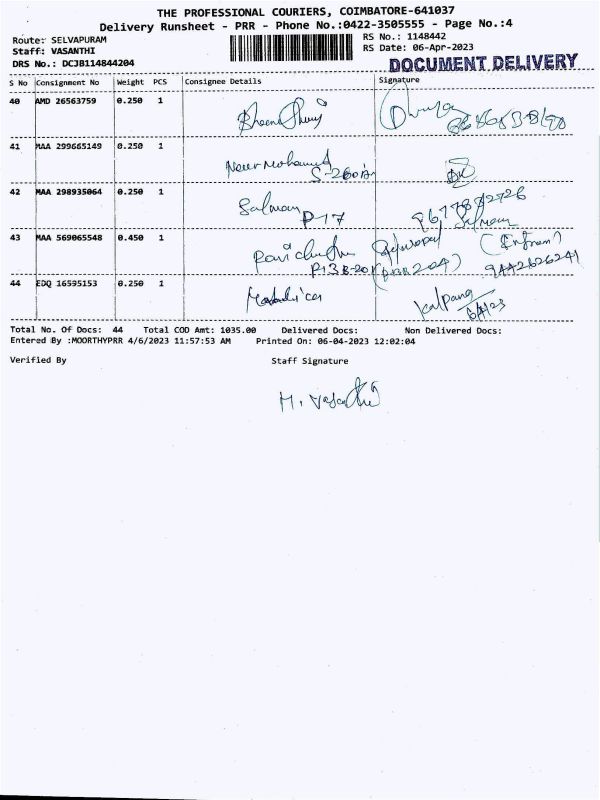 THE PROFESSIONAL COURIERS, COIMBATORE-641037
Delivery Runsheet - PRR - Phone No.:0422-3505555 - Page No.:4
Route: SELVAPURAM
RS No.: 1148442
Staff: VASANTHI
RS Date: 06-Apr-2023
DRS No.: DCJB114844204
DOCUMENT DELIVERY
S No Consignment No Weight PCS Consignee Details Signature
40 AMD 26563759 0.250 1
41 MAA 299665149 0.250 1
Noor Mohamed
S-260A
42 MAA 298935064 0.250 1
Salman
P-17
9677882726
Salman
43 MAA 569065548 0.450 1
Selvaraj
P13B-201 (P13B 204)
9442626241
44 EDQ 16595153 0.250 1
Kalpana
6/4/23
Total No. Of Docs: 44 Total COD Amt: 1035.00 Delivered Docs: Non Delivered Docs:
Entered By :MOORTHYPRR 4/6/2023 11:57:53 AM Printed On: 06-04-2023 12:02:04
Verified By Staff Signature
M. Vasanthi